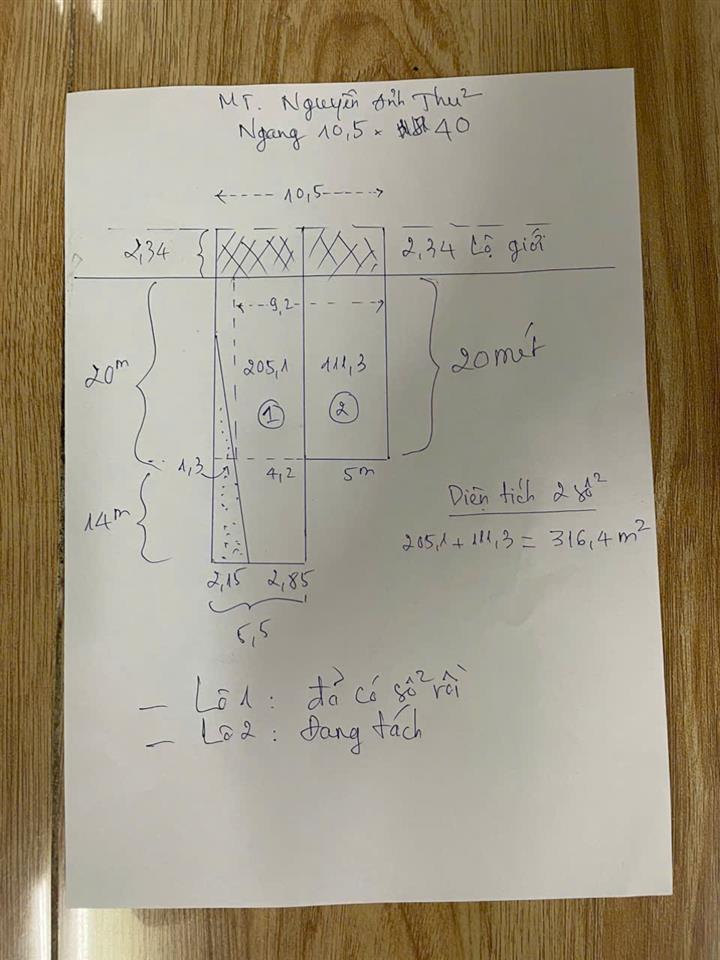 MT. Nguyễn Ảnh Thủ
Ngang 10,5 × 40
10,5
2,34
2,34 Lộ giới
9,2
20m
205,1
111,3
20 mét
1
2
1,3
4,2
5m
14m
Diện tích 2 sổ
205,1 + 111,3 = 316,4 m²
2,15
2,85
5,5
— Lô 1 : đả có sổ rồi
— Lô 2 : Đang tách